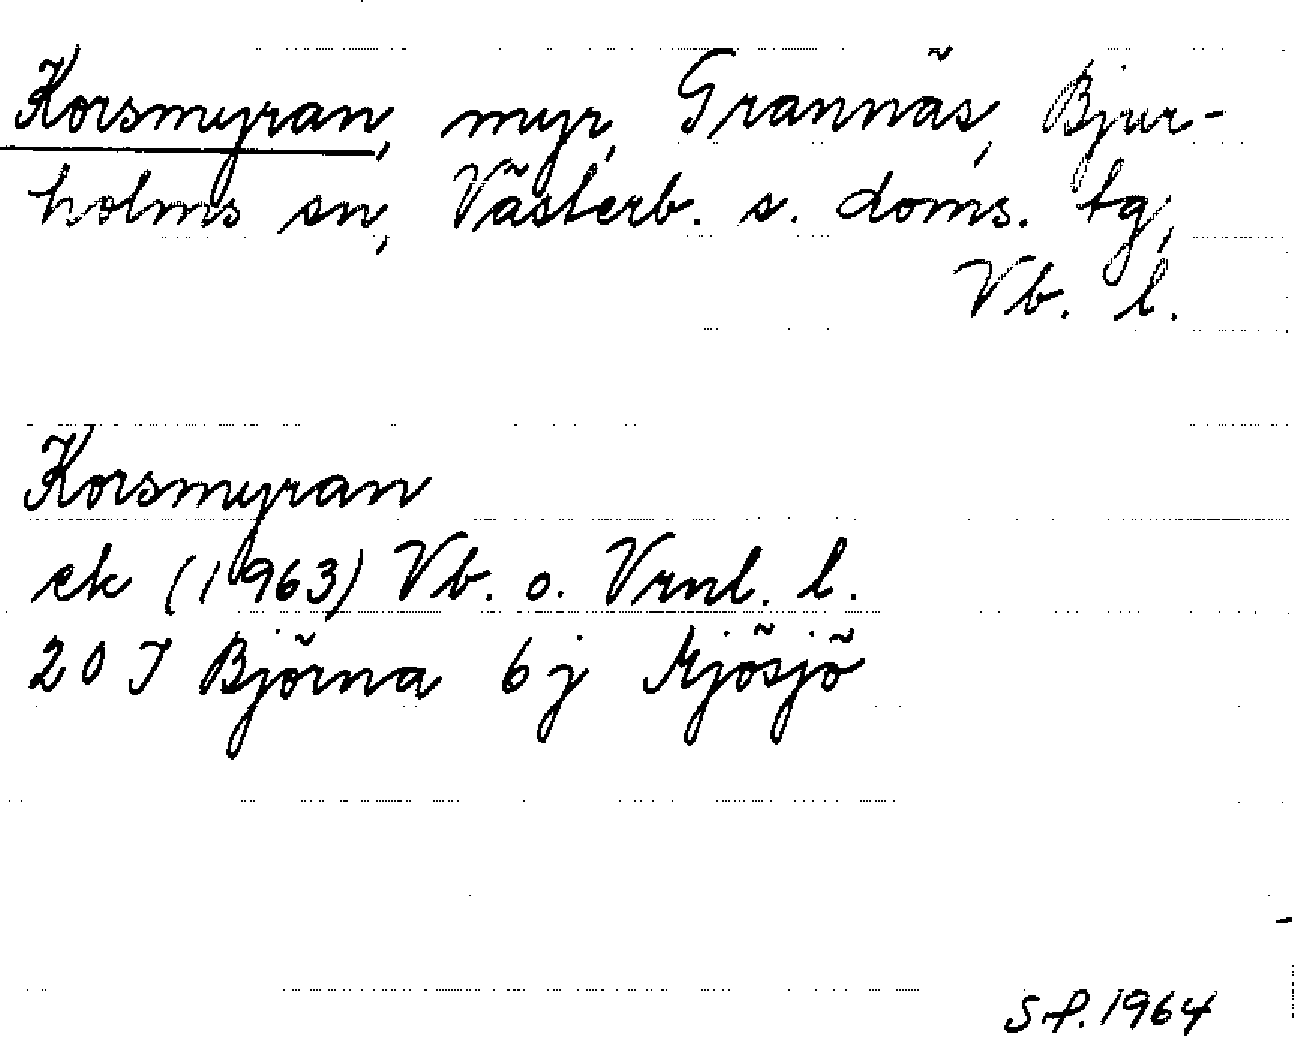 Korsmyran, myr, Grannäs, Bjur-
holms sn, Västerb. s. doms. tg,
Vb. l.
Korsmyran
ek (1963) Vb. o. Vrnl. l.
20 J Björna 6 j Mjösjö
S.P. 1964